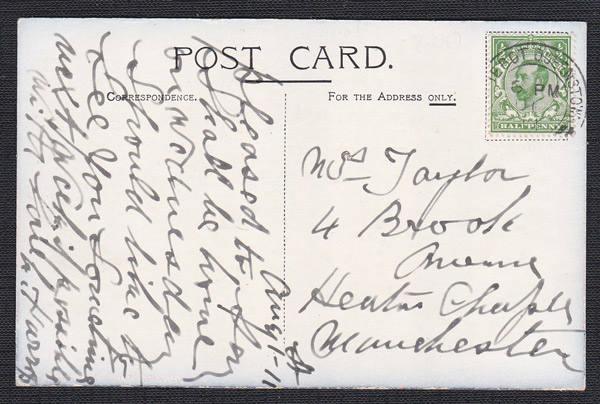 POST CARD.
CORRESPONDENCE.
FOR THE ADDRESS ONLY.
HALFPENNY
PM
Aug 1-11
Pleased to
I shall be home
on Wednesday
I should like to
see you
next week if possible
with love
Mrs Taylor
4 Brook
Avenue
Heaton Chapel
Manchester